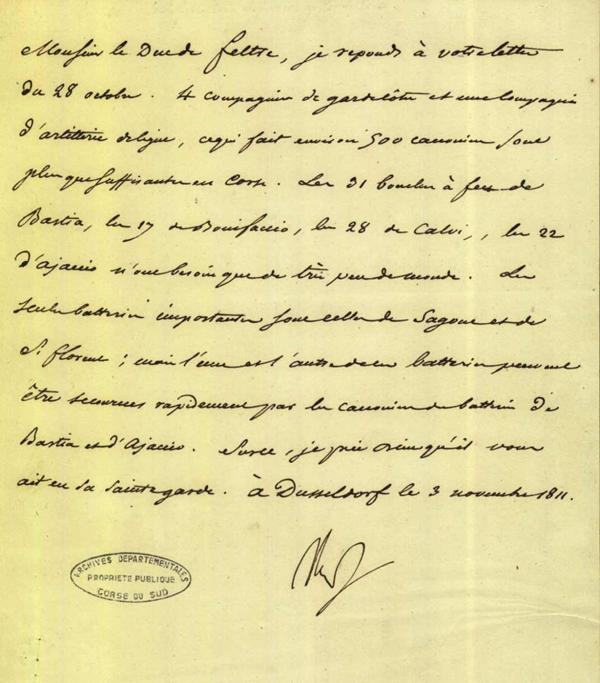 Monsieur le Duc de Feltre, je reponds à votre lettre
du 28 octobre. 4 compagnies de gardecôte et une Compagnie
d'artillerie de ligne, ce qui fait environ 500 canoniers sont
plus que suffisantes en Corse. Les 31 bouches à feu de
Bastia, les 17 de Bonifaccio, les 28 de Calvi, les 22
d'ajaccio n'ont besoin que de très peu de monde. Les
seules batteries importantes sont celles de Sagone et de
St florent; mais l'une et l'autre de ces batteries peuvent
être secourues rapidement par les canoniers des batteries de
Bastia et d'Ajaccio. Sur ce, je prie Dieu qu'il vous
ait en sa Sainte garde. à Dusseldorf le 3 novembre 1811.
ARCHIVES DÉPARTEMENTALES
PROPRIÉTÉ PUBLIQUE
CORSE DU SUD